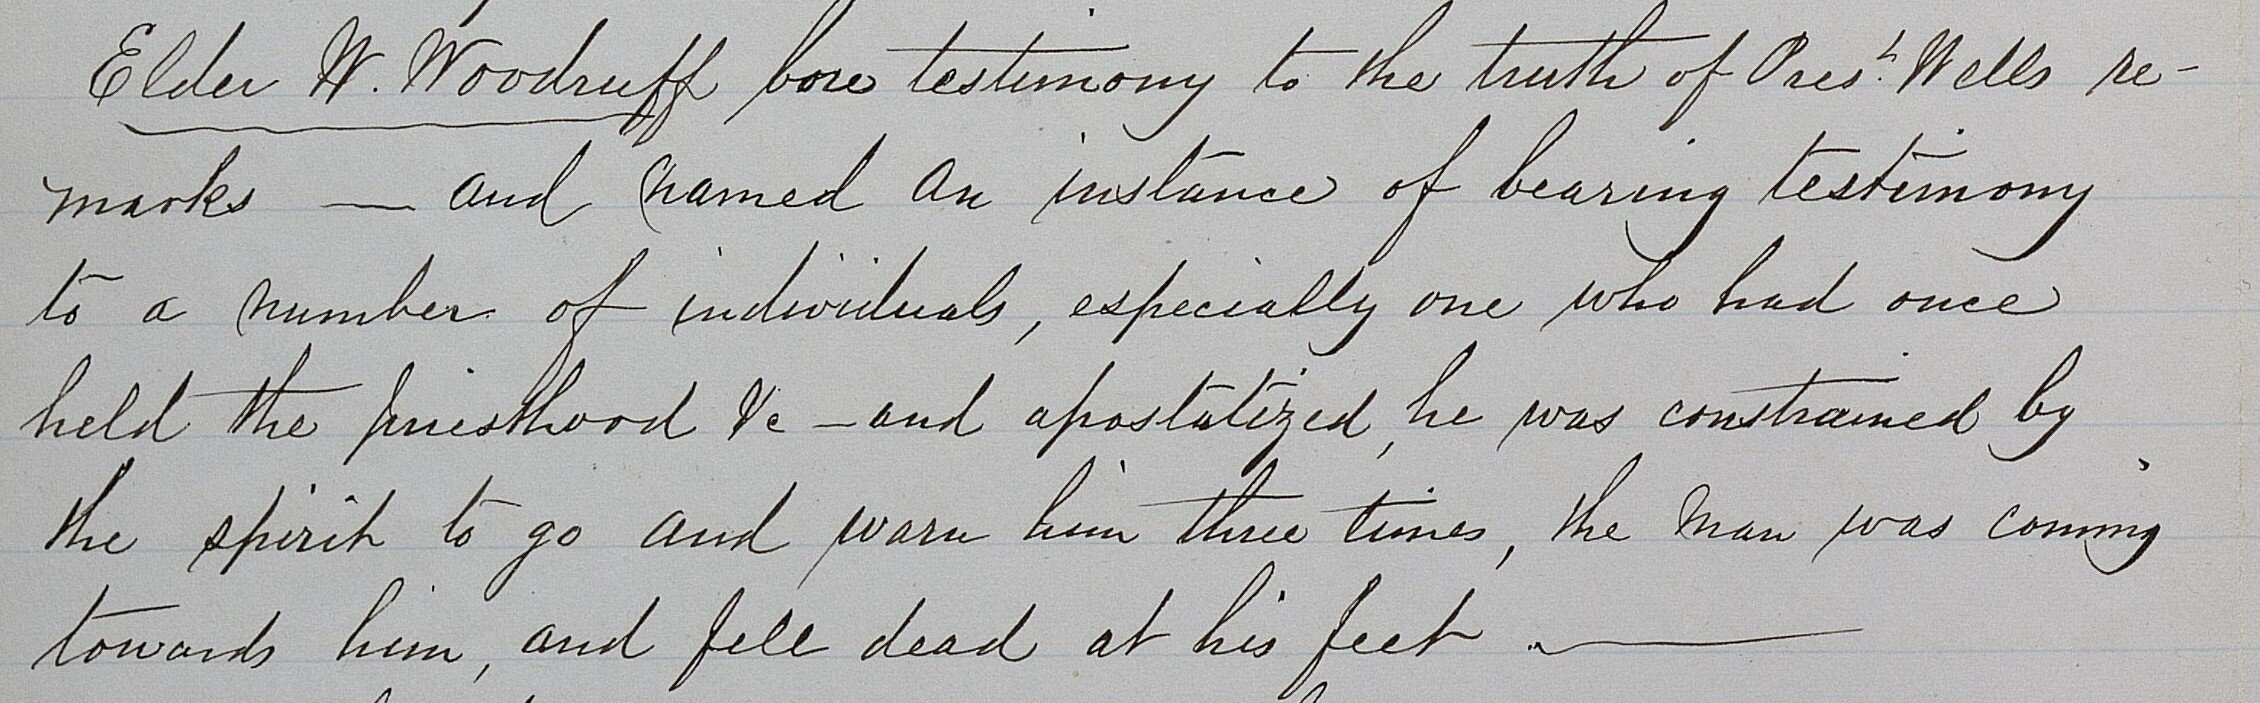 Elder W. Woodruff bore testimony to the truth of Pres.t Wells re-
marks — and named an instance of bearing testimony
to a number of individuals, especially one who had once
held the priesthood &c — and apostatized, he was constrained by
the spirit to go and warn him three times, the man was coming
towards him, and fell dead at his feet. —